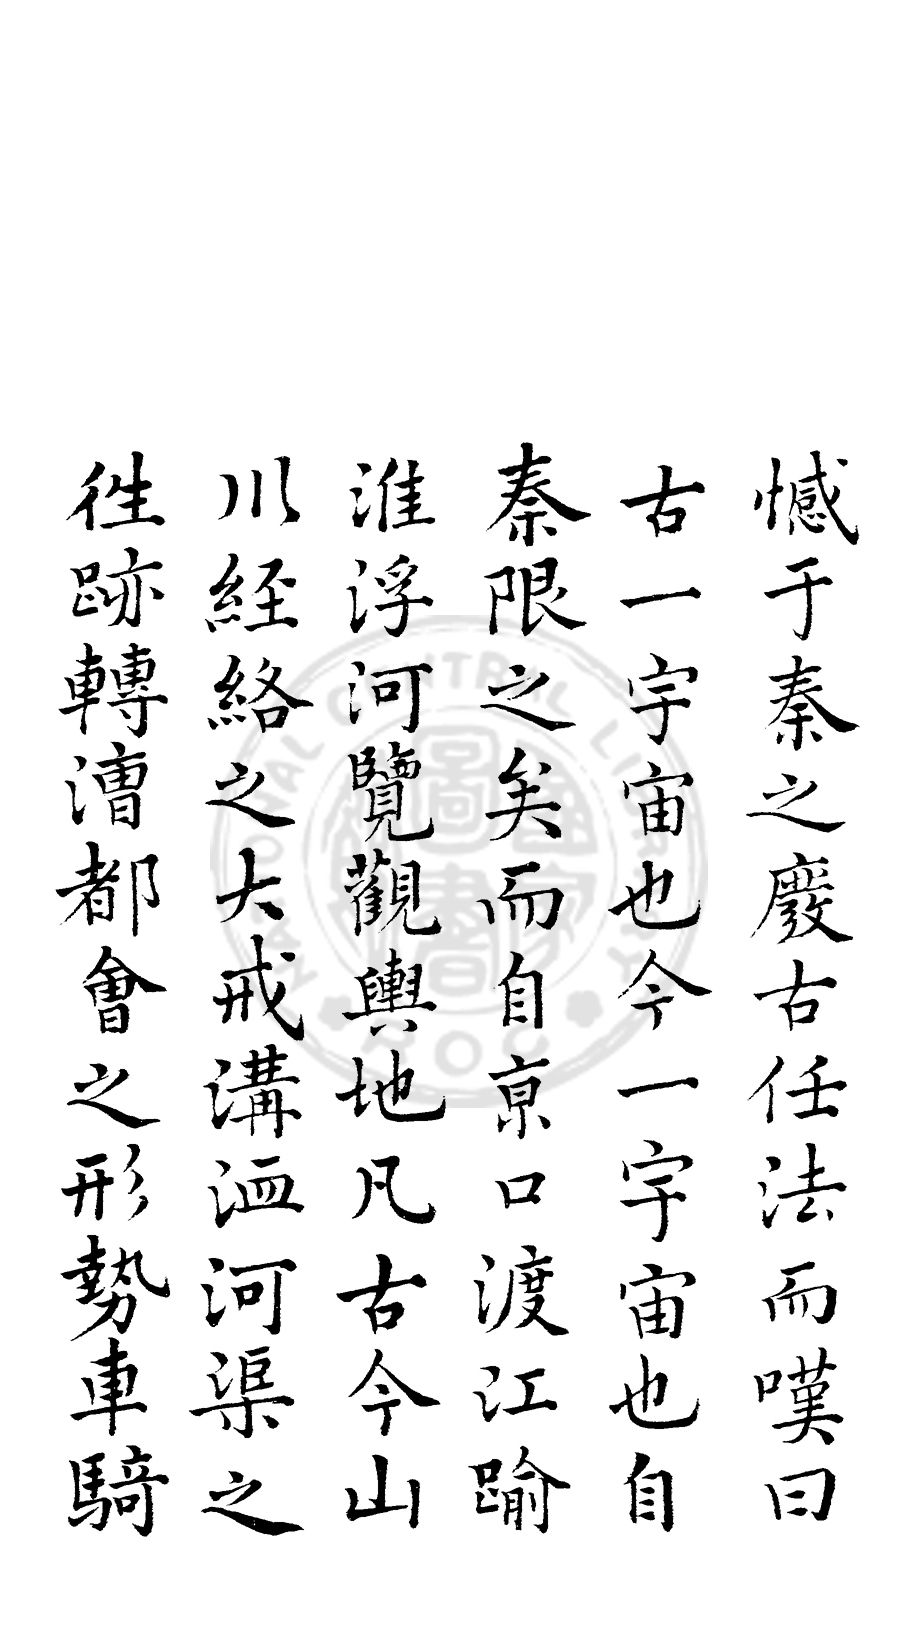 憾于秦之廢古任法而嘆曰
古一宇宙也今一宇宙也自
秦限之矣而自京口渡江踰
淮浮河覽觀輿地凡古今山
川經絡之大戒溝洫河渠之
徃跡轉漕都會之形勢車騎
NATIONAL CENTRAL LIBRARY
ROC
國家圖書館